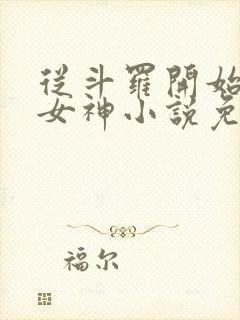 從斗羅開始
女神小說免
福尔